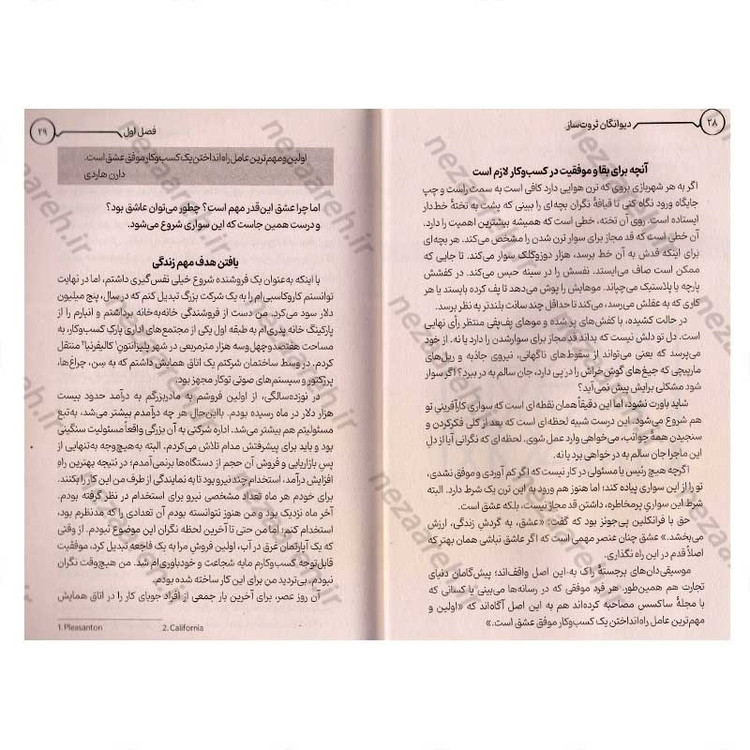 ۲۸ دیوانگان ثروت‌ساز
آنچه برای بقا و موفقیت در کسب‌وکار لازم است
اگر به هر شهربازی بروی که ترن هوایی دارد کافی است به سمت راست و چپ
جایگاه ورود نگاه کنی تا قیافهٔ نگران بچه‌ای را ببینی که پشت به تختهٔ خط‌دار
ایستاده است. روی آن تخته، خطی است که همیشه بیشترین اهمیت را دارد.
آن خطی است که قد مجاز برای سوار ترن شدن را مشخص می‌کند. هر بچه‌ای
برای اینکه قدش به آن خط برسد، هزار دوزوکلک سوار می‌کند. تا جایی که
ممکن است صاف می‌ایستد. نفسش را در سینه حبس می‌کند. در کفشش
پارچه یا پلاستیک می‌چپاند. موهایش را پوش می‌دهد تا پف کرده بایستد یا هر
کاری که به عقلش می‌رسد، می‌کند تا حداقل چند سانت بلندتر به نظر برسد.
در حالت کشیده، با کفش‌های پر شده و موهای پف‌پفی منتظر رأی نهایی
است. دل تو دلش نیست که بداند قد مجاز برای سوارشدن را دارد یا نه. از خود
می‌پرسد که یعنی می‌تواند از سقوط‌های ناگهانی، نیروی جاذبه و ریل‌های
مارپیچی که جیغ‌های گوش‌خراش را در پی دارد، جان سالم به در ببرد؟ اگر سوار
شود مشکلی برایش پیش نمی‌آید؟
شاید باورت نشود، اما این دقیقاً همان نقطه‌ای است که سواری کارآفرینی تو
هم شروع می‌شود. این درست شبیه لحظه‌ای است که بعد از کلی فکرکردن و
سنجیدن همهٔ جوانب، می‌خواهی وارد عمل شوی. لحظه‌ای که نگرانی آیا از دلِ
این ماجرا جان سالم به در خواهی برد یا نه.
اگرچه هیچ رئیس یا مسئولی در کار نیست که اگر کم آوردی و موفق نشدی،
تو را از این سواری پیاده کند؛ اما هنوز هم ورود به این ترن یک شرط دارد. البته
شرط این سواریِ پرمخاطره، داشتن قد مجاز نیست، بلکه عشق است.
حق با فرانکلین پی‌جونز بود که گفت: «عشق، به گردشِ زندگی، ارزش
می‌بخشد.» عشق چنان عنصر مهمی است که اگر عاشق نباشی همان بهتر که
اصلاً قدم در این راه نگذاری.
موسیقی‌دان‌های برجستهٔ راک به این اصل واقف‌اند؛ پیش‌گامان دنیای
تجارت هم همین‌طور. هر فرد موفقی که در رسانه‌ها می‌بینی یا کسانی که
با مجلهٔ ساکسس مصاحبه کرده‌اند هم به این اصل آگاه‌اند که «اولین و
مهم‌ترین عامل راه‌انداختن یک کسب‌وکار موفق عشق است.»
فصل اول ۲۹
اولین و مهم‌ترین عامل راه‌انداختن یک کسب‌وکار موفق عشق است.
دارن هاردی
اما چرا عشق این‌قدر مهم است؟ چطور می‌توان عاشق بود؟
و درست همین جاست که این سواری شروع می‌شود.
یافتن هدف مهم زندگی
با اینکه به‌عنوان یک فروشنده شروع خیلی نفس‌گیری داشتم، اما در نهایت
توانستم کاروکاسبی‌ام را به یک شرکت بزرگ تبدیل کنم که در سال، پنج میلیون
دلار سود می‌کرد. من دست از فروشندگی خانه‌به‌خانه برداشتم و انبارم را از
پارکینگ خانه پدری‌ام به طبقه اول یکی از مجتمع‌های اداری پارک کسب‌وکار، به
مساحت هفتصدوچهل‌وسه هزار مترمربعی در شهر پلیزانتون۱ کالیفرنیا۲ منتقل
کردم. در وسط ساختمان شرکتم یک اتاق همایش داشتم که به سن، چراغ‌ها،
پرژکتور و سیستم‌های صوتی توکار مجهز بود.
در نوزده‌سالگی، از اولین فروشم به مادربزرگم به درآمد حدود بیست
هزار دلار در ماه رسیده بودم. بااین‌حال هر چه درآمدم بیشتر می‌شد، به‌تبع
مسئولیتم هم بیشتر می‌شد. اداره شرکتی به آن بزرگی واقعاً مسئولیت سنگینی
بود و باید برای پیشرفتش مدام تلاش می‌کردم. البته به‌هیچ‌وجه به‌تنهایی از
پس بازاریابی و فروش آن حجم از دستگاه‌ها برنمی‌آمدم؛ در نتیجه بهترین راهِ
افزایش درآمد، استخدام چند نیرو بود تا به نمایندگی از طرف من این کار را بکنند.
برای خودم هر ماه تعداد مشخصی نیرو برای استخدام در نظر گرفته بودم.
آخر ماه نزدیک بود و من هنوز نتوانسته بودم آن تعدادی را که مدنظرم بود،
استخدام کنم؛ اما من حتی تا آخرین لحظه نگران این موضوع نبودم. از وقتی
که یک آپارتمان غرق در آب، اولین فروشِ مرا به یک فاجعه تبدیل کرد، موفقیت
قابل‌توجه کسب‌وکارم مایه شجاعت و خودباوری‌ام شد. من هیچ‌وقت نگران
نبودم. بی‌تردید من برای این کار ساخته شده بودم.
آن روز عصر، برای آخرین بار جمعی از افراد جویای کار را در اتاق همایش
1. Pleasanton 2. California
nezaareh.ir